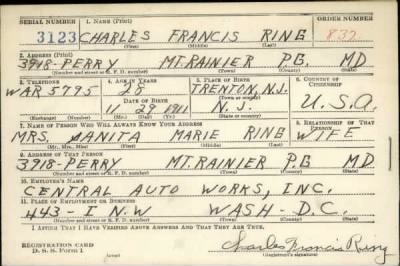 SERIAL NUMBER 1. NAME (Print) ORDER NUMBER
3123 CHARLES FRANCIS RING 832
(First) (Middle) (Last)
2. ADDRESS (Print)
3918-PERRY MT. RAINIER P.G. MD
(Number and street or R. F. D. number) (Town) (County) (State)
3. TELEPHONE 4. AGE IN YEARS 5. PLACE OF BIRTH 6. COUNTRY OF CITIZENSHIP
WAR 5795 28 TRENTON, N.J.
(Town or county)
DATE OF BIRTH
11 29 1911 N.J. U.S.A.
(Exchange) (Number) (Mo.) (Day) (Yr.) (State or country)
7. NAME OF PERSON WHO WILL ALWAYS KNOW YOUR ADDRESS 8. RELATIONSHIP OF THAT PERSON
MRS. ANITA MARIE RING WIFE
(Mr., Mrs., Miss) (First) (Middle) (Last)
9. ADDRESS OF THAT PERSON
3918-PERRY MT. RAINIER P.G MD
(Number and street or R. F. D. number) (Town) (County) (State)
10. EMPLOYER'S NAME
CENTRAL AUTO WORKS, INC.
11. PLACE OF EMPLOYMENT OR BUSINESS
443- I N.W WASH-D.C.
(Number and street or R. F. D. number) (Town) (County) (State)
I AFFIRM THAT I HAVE VERIFIED ABOVE ANSWERS AND THAT THEY ARE TRUE.
REGISTRATION CARD
D. S. S. Form 1 Charles Francis Ring
(over) (Registrant's signature)